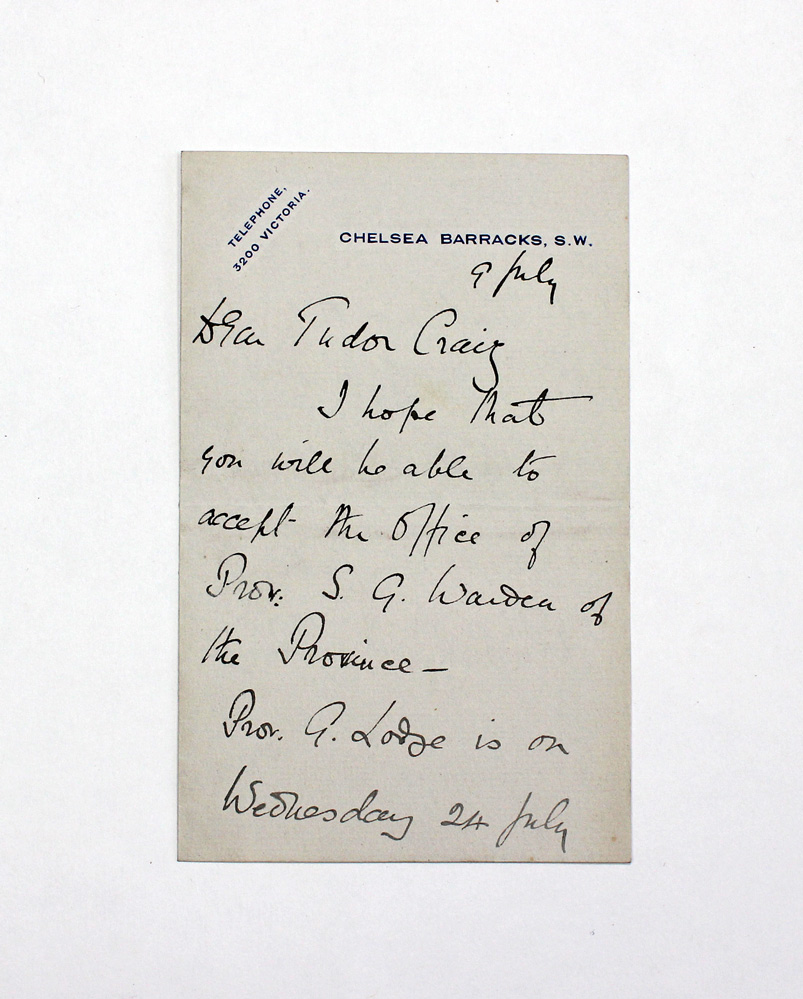 TELEPHONE,
3200 VICTORIA.
CHELSEA BARRACKS, S.W.
9 July
Dear Tudor Craig
I hope that
you will be able to
accept the Office of
Prov: S. G. Warden of
the Province —
Prov. G. Lodge is on
Wednesday 24 July